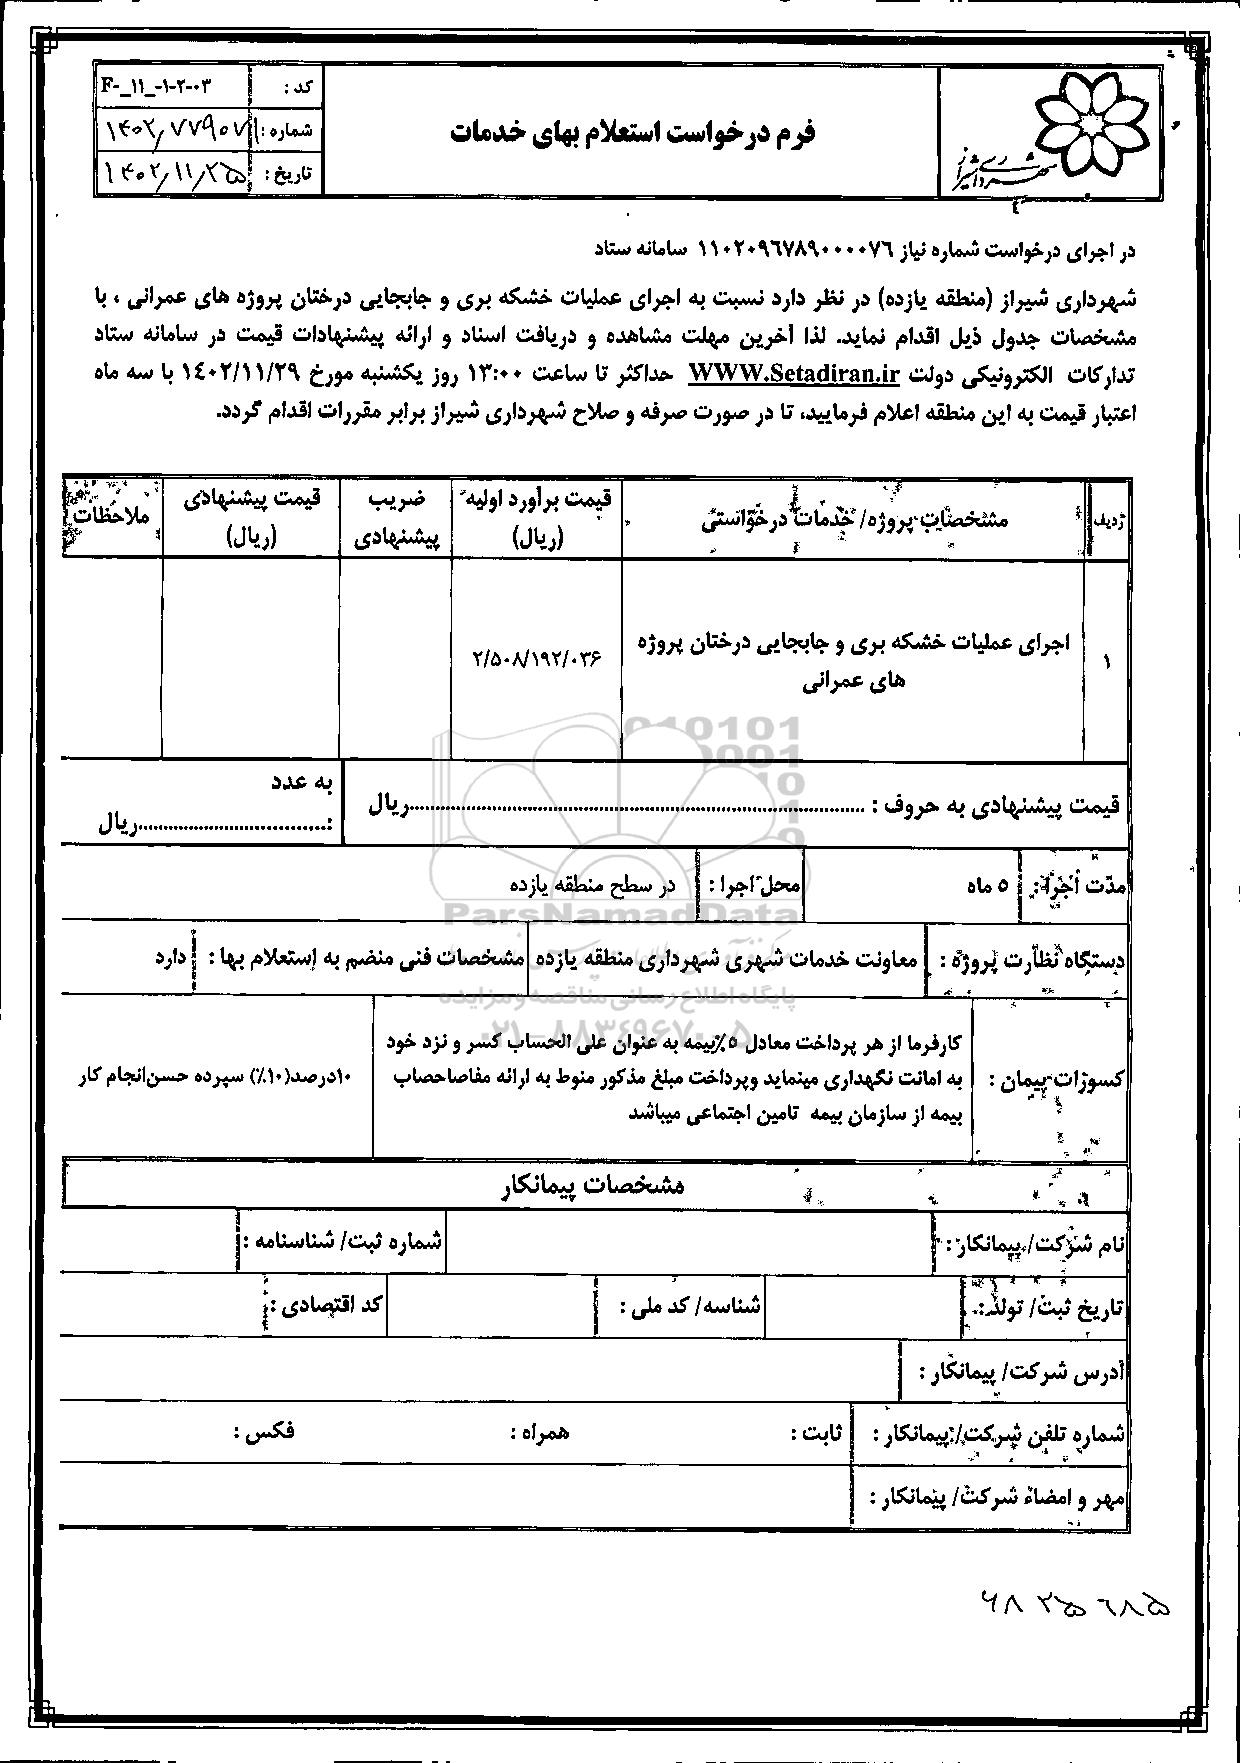 شهرداری شیراز
فرم درخواست استعلام بهای خدمات
کد : F-_۱۱_-۱-۲-۰۳
شماره : ۱۴۰۲/۷۷۹۰۷
تاریخ : ۱۴۰۲/۱۱/۲۵
در اجرای درخواست شماره نیاز ۱۱۰۲۰۹۶۷۸۹۰۰۰۰۷۶ سامانه ستاد
شهرداری شیراز (منطقه یازده) در نظر دارد نسبت به اجرای عملیات خشکه بری و جابجایی درختان پروژه های عمرانی ، با
مشخصات جدول ذیل اقدام نماید. لذا آخرین مهلت مشاهده و دریافت اسناد و ارائه پیشنهادات قیمت در سامانه ستاد
تدارکات الکترونیکی دولت WWW.Setadiran.ir حداکثر تا ساعت ۱۳:۰۰ روز یکشنبه مورخ ۱٤۰۲/۱۱/۲۹ با سه ماه
اعتبار قیمت به این منطقه اعلام فرمایید، تا در صورت صرفه و صلاح شهرداری شیراز برابر مقررات اقدام گردد.
ردیف
مشخصات پروژه/ خدمات درخواستی
قیمت برآورد اولیه (ریال)
ضریب پیشنهادی
قیمت پیشنهادی (ریال)
ملاحظات
۱
اجرای عملیات خشکه بری و جابجایی درختان پروژه
های عمرانی
۲/۵۰۸/۱۹۲/۰۳۶
قیمت پیشنهادی به حروف : ..........ریال
به عدد
:..........ریال
مدت اجرا: ۵ ماه
محل اجرا : در سطح منطقه یازده
دستگاه نظارت پروژه : معاونت خدمات شهری شهرداری منطقه یازده
مشخصات فنی منضم به استعلام بها : دارد
کسورات پیمان :
کارفرما از هر پرداخت معادل ۵٪بیمه به عنوان علی الحساب کسر و نزد خود
به امانت نگهداری مینماید وپرداخت مبلغ مذکور منوط به ارائه مفاصاحصاب
بیمه از سازمان بیمه تامین اجتماعی میباشد
۱۰درصد(۱۰٪) سپرده حسن انجام کار
مشخصات پیمانکار
نام شرکت/ پیمانکار :
شماره ثبت/ شناسنامه :
تاریخ ثبت/ تولد :
شناسه/ کد ملی :
کد اقتصادی :
آدرس شرکت/ پیمانکار :
شماره تلفن شرکت/ پیمانکار :
ثابت :
همراه :
فکس :
مهر و امضاء شرکت/ پیمانکار :
ParsNamadData
پایگاه اطلاع رسانی مناقصه و مزایده
۰۲۱-۸۸۳۴۹۶۷۰-۵